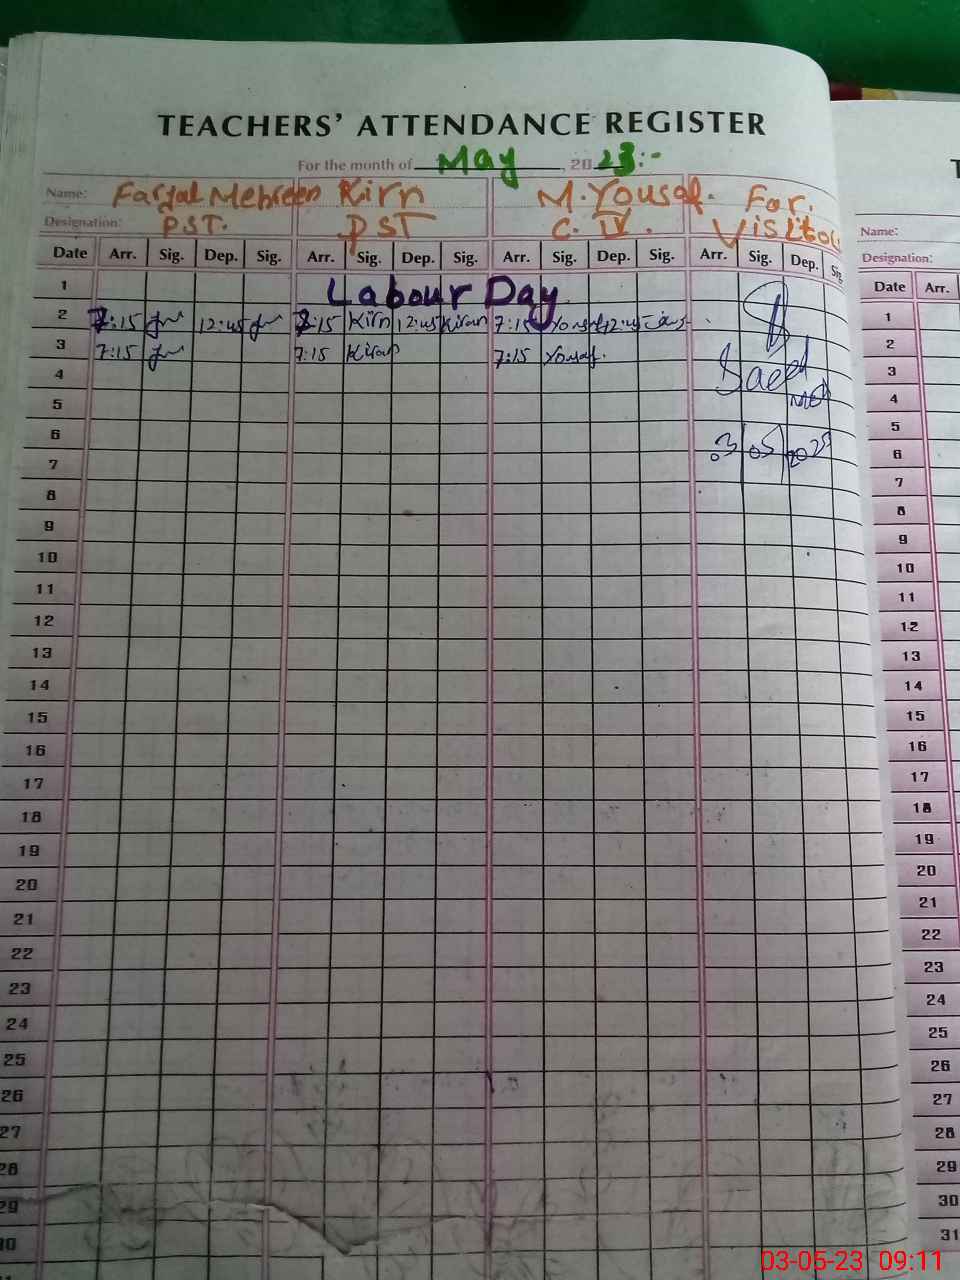 TEACHERS' ATTENDANCE REGISTER
For the month of May, 2023:-
Name: Kirn M. Yousaf. For.
Designation: PST. PST C. IV. Visiitor
Date Arr. Sig. Dep. Sig. Arr. Sig. Dep. Sig. Arr. Sig. Dep. Sig. Arr. Sig. Dep. Sig
1 Labour Day
2 7:15 12:45 7:15 Kirn 12:45 Kiran 7:15 Yousaf 12:45
3 7:15 7:15 Kiran 7:15 Yousaf.
Saeed
4
5
6 03 05 2023
7
8
9
10
11
12
13
14
15
16
17
18
19
20
21
22
23
24
25
26
27
28
29
30
T
Name:
Designation:
Date Arr.
1
2
3
4
5
6
7
8
9
10
11
12
13
14
15
16
17
18
19
20
21
22
23
24
25
26
27
28
29
30
31
03-05-23 09:11